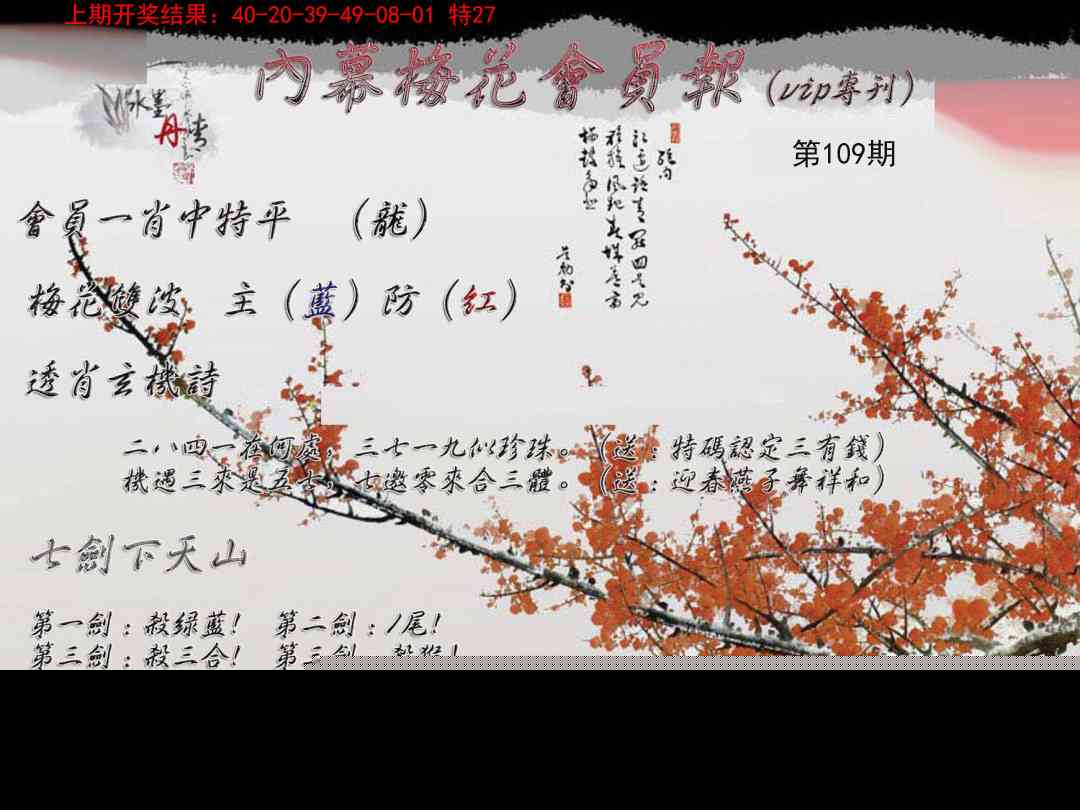 上期开奖结果：40-20-39-49-08-01 特27
內幕梅花會員報（vip專刊）
水墨
丹青
第109期
會員一肖中特平 （龍）
梅花雙波 主（藍）防（红）
透肖玄機詩
二八四一在何處，三七一九似珍珠。（送：特碼認定三有錢）
機遇三來是五七，七邀零來合三體。（送：迎春燕子舞祥和）
七劍下天山
第一劍：殺绿藍！ 第二劍：1尾！
第三劍：殺三合！